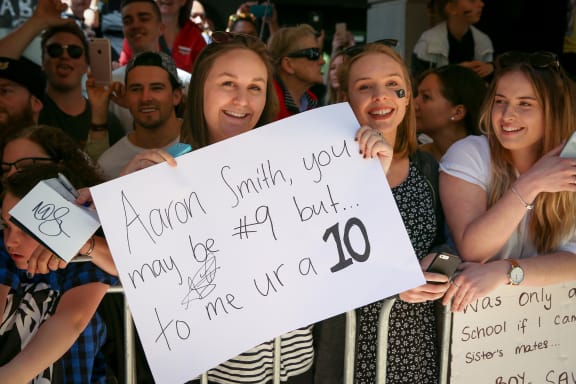 Aaron Smith, you
may be #9 but...
to me ur a 10
Was Only a
School if I Cam
Sister's mates...